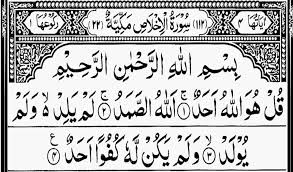 اٰيَاتُهَا ٤ (١١٢) سُوْرَةُ الْاِخْلَاصِ مَكِّيَّةٌ (٢٢) رُكُوْعُهَا ١
بِسْمِ اللهِ الرَّحْمٰنِ الرَّحِيْمِ
قُلْ هُوَ اللهُ اَحَدٌ ۚ ١ اَللهُ الصَّمَدُ ۚ ٢ لَمْ يَلِدْ ۙ وَلَمْ
يُوْلَدْ ۙ ٣ وَلَمْ يَكُنْ لَّهٗ كُفُوًا اَحَدٌ ٤